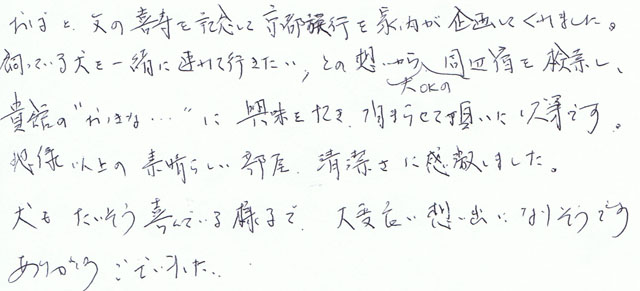 父の喜寿を記念して京都旅行を家内が企画してくれました。
飼っている犬を一緒に連れて行きたい、との想いから
犬OKの
周辺宿を検索し、
貴館の"おきな…"に興味を抱き、泊まらせて頂いた次第です。
想像以上の素晴らしい部屋、清潔さに感激しました。
犬もたいそう喜んでいる様子で、大変良い想い出になりそうです
ありがとうございました..